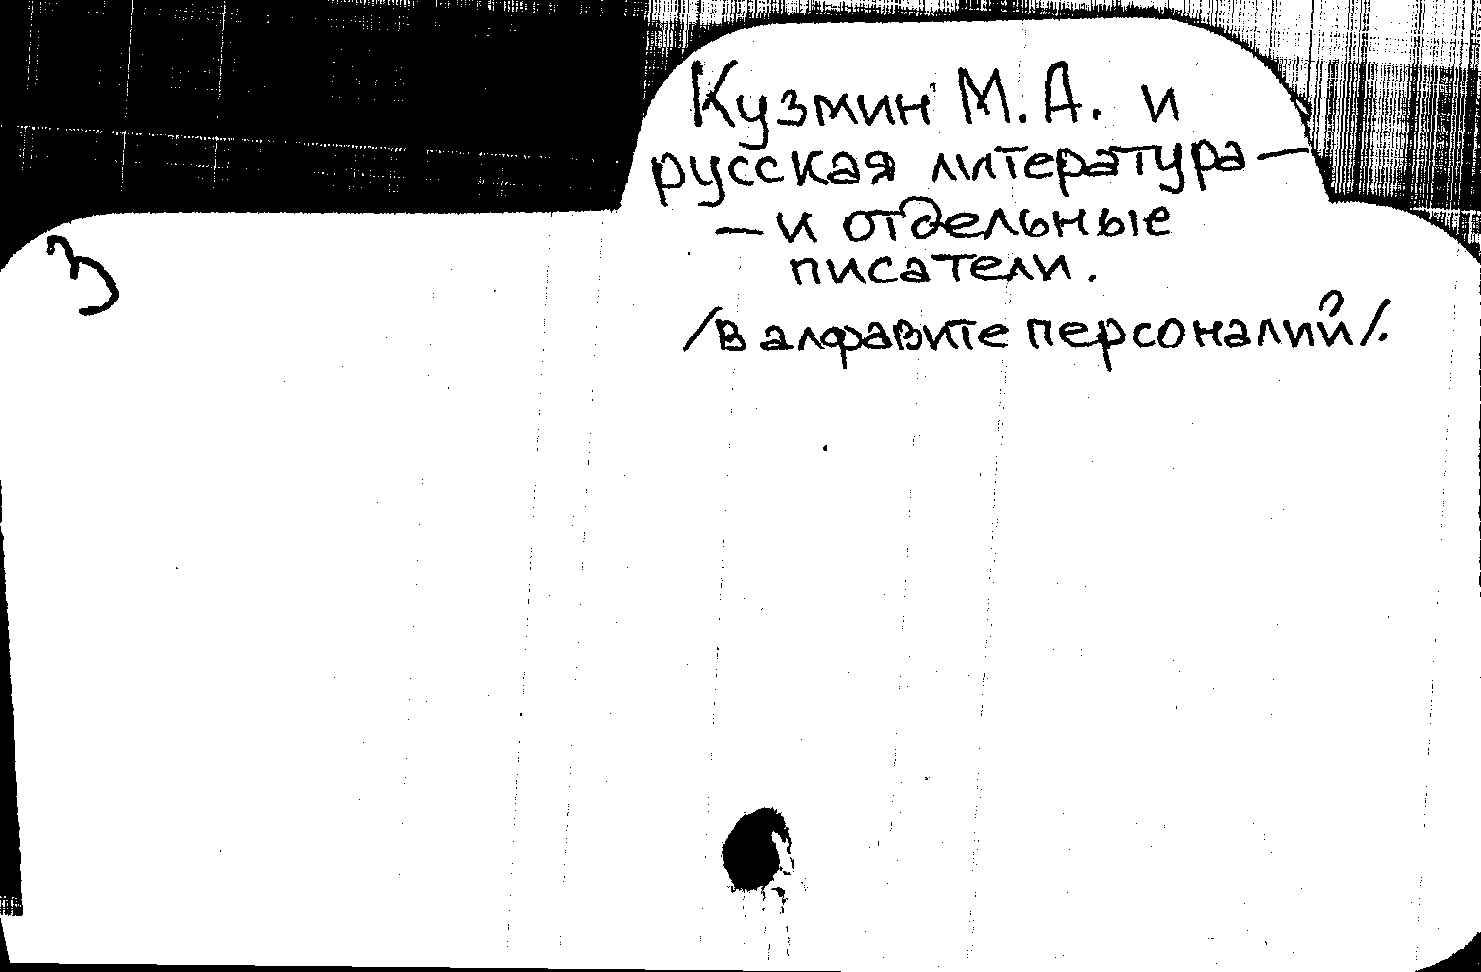 Кузмин М. А. и
русская литература —
— и отдельные
писатели.
/в алфавите персоналий/.
3